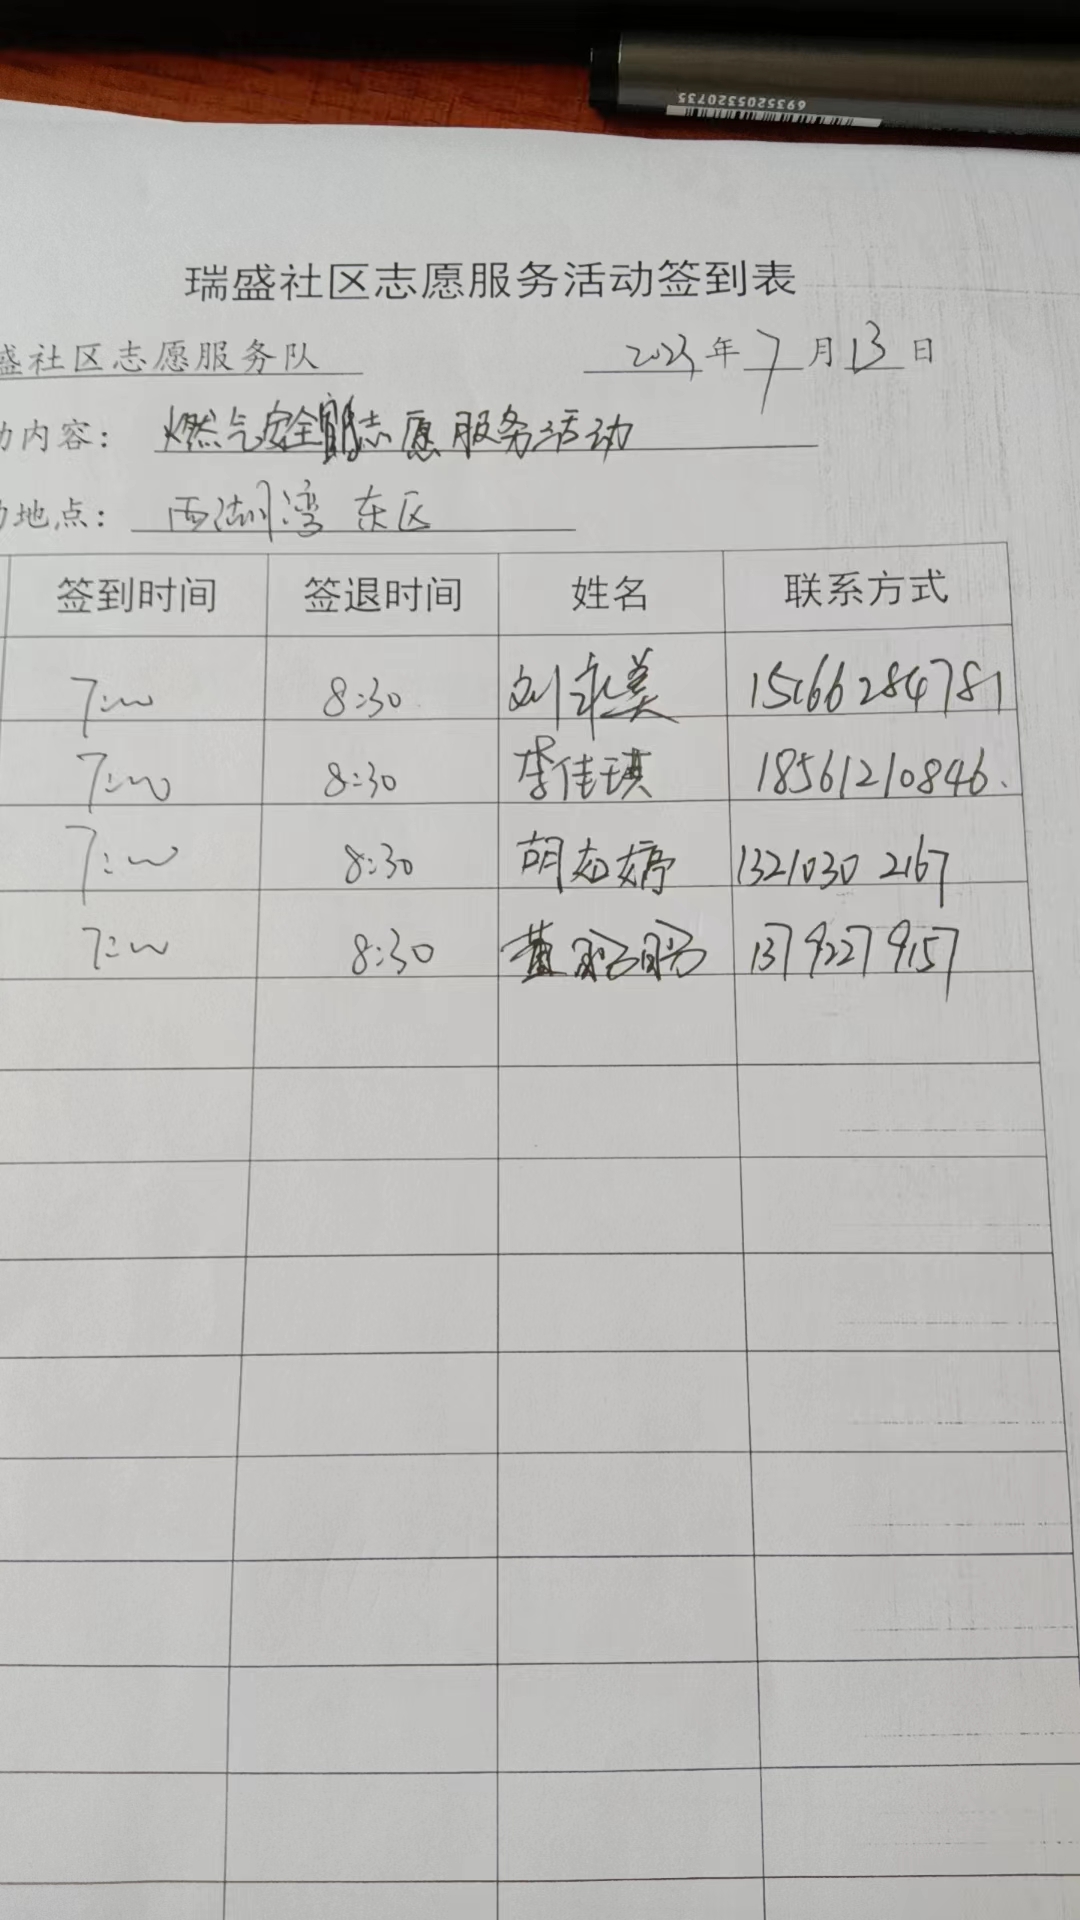 6935205320735
瑞盛社区志愿服务活动签到表
盛社区志愿服务队 2023年7月13日
动内容： 燃气安全志愿服务活动
动地点： 西湖湾东区
签到时间 签退时间 姓名 联系方式
7:00 8:30 刘永美 15166284781
7:00 8:30 李佳琪 18561210846.
7:00 8:30 胡婷 13210302167
7:00 8:30 黄 13792279157